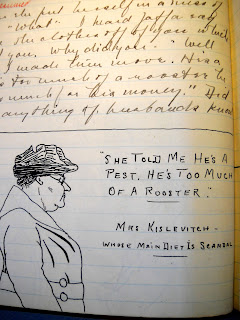 put herself in a mess of
"What." I heard say
clothes off of you
you. Why did you." "Well
I made them move. He's a
too much of a rooster he
much for his money." Did
anything husbands
"SHE TOLD ME HE'S A
PEST. HE'S TOO MUCH
OF A ROOSTER."
MRS KISLEVITCH -
WHOSE MAIN DIET IS SCANDAL